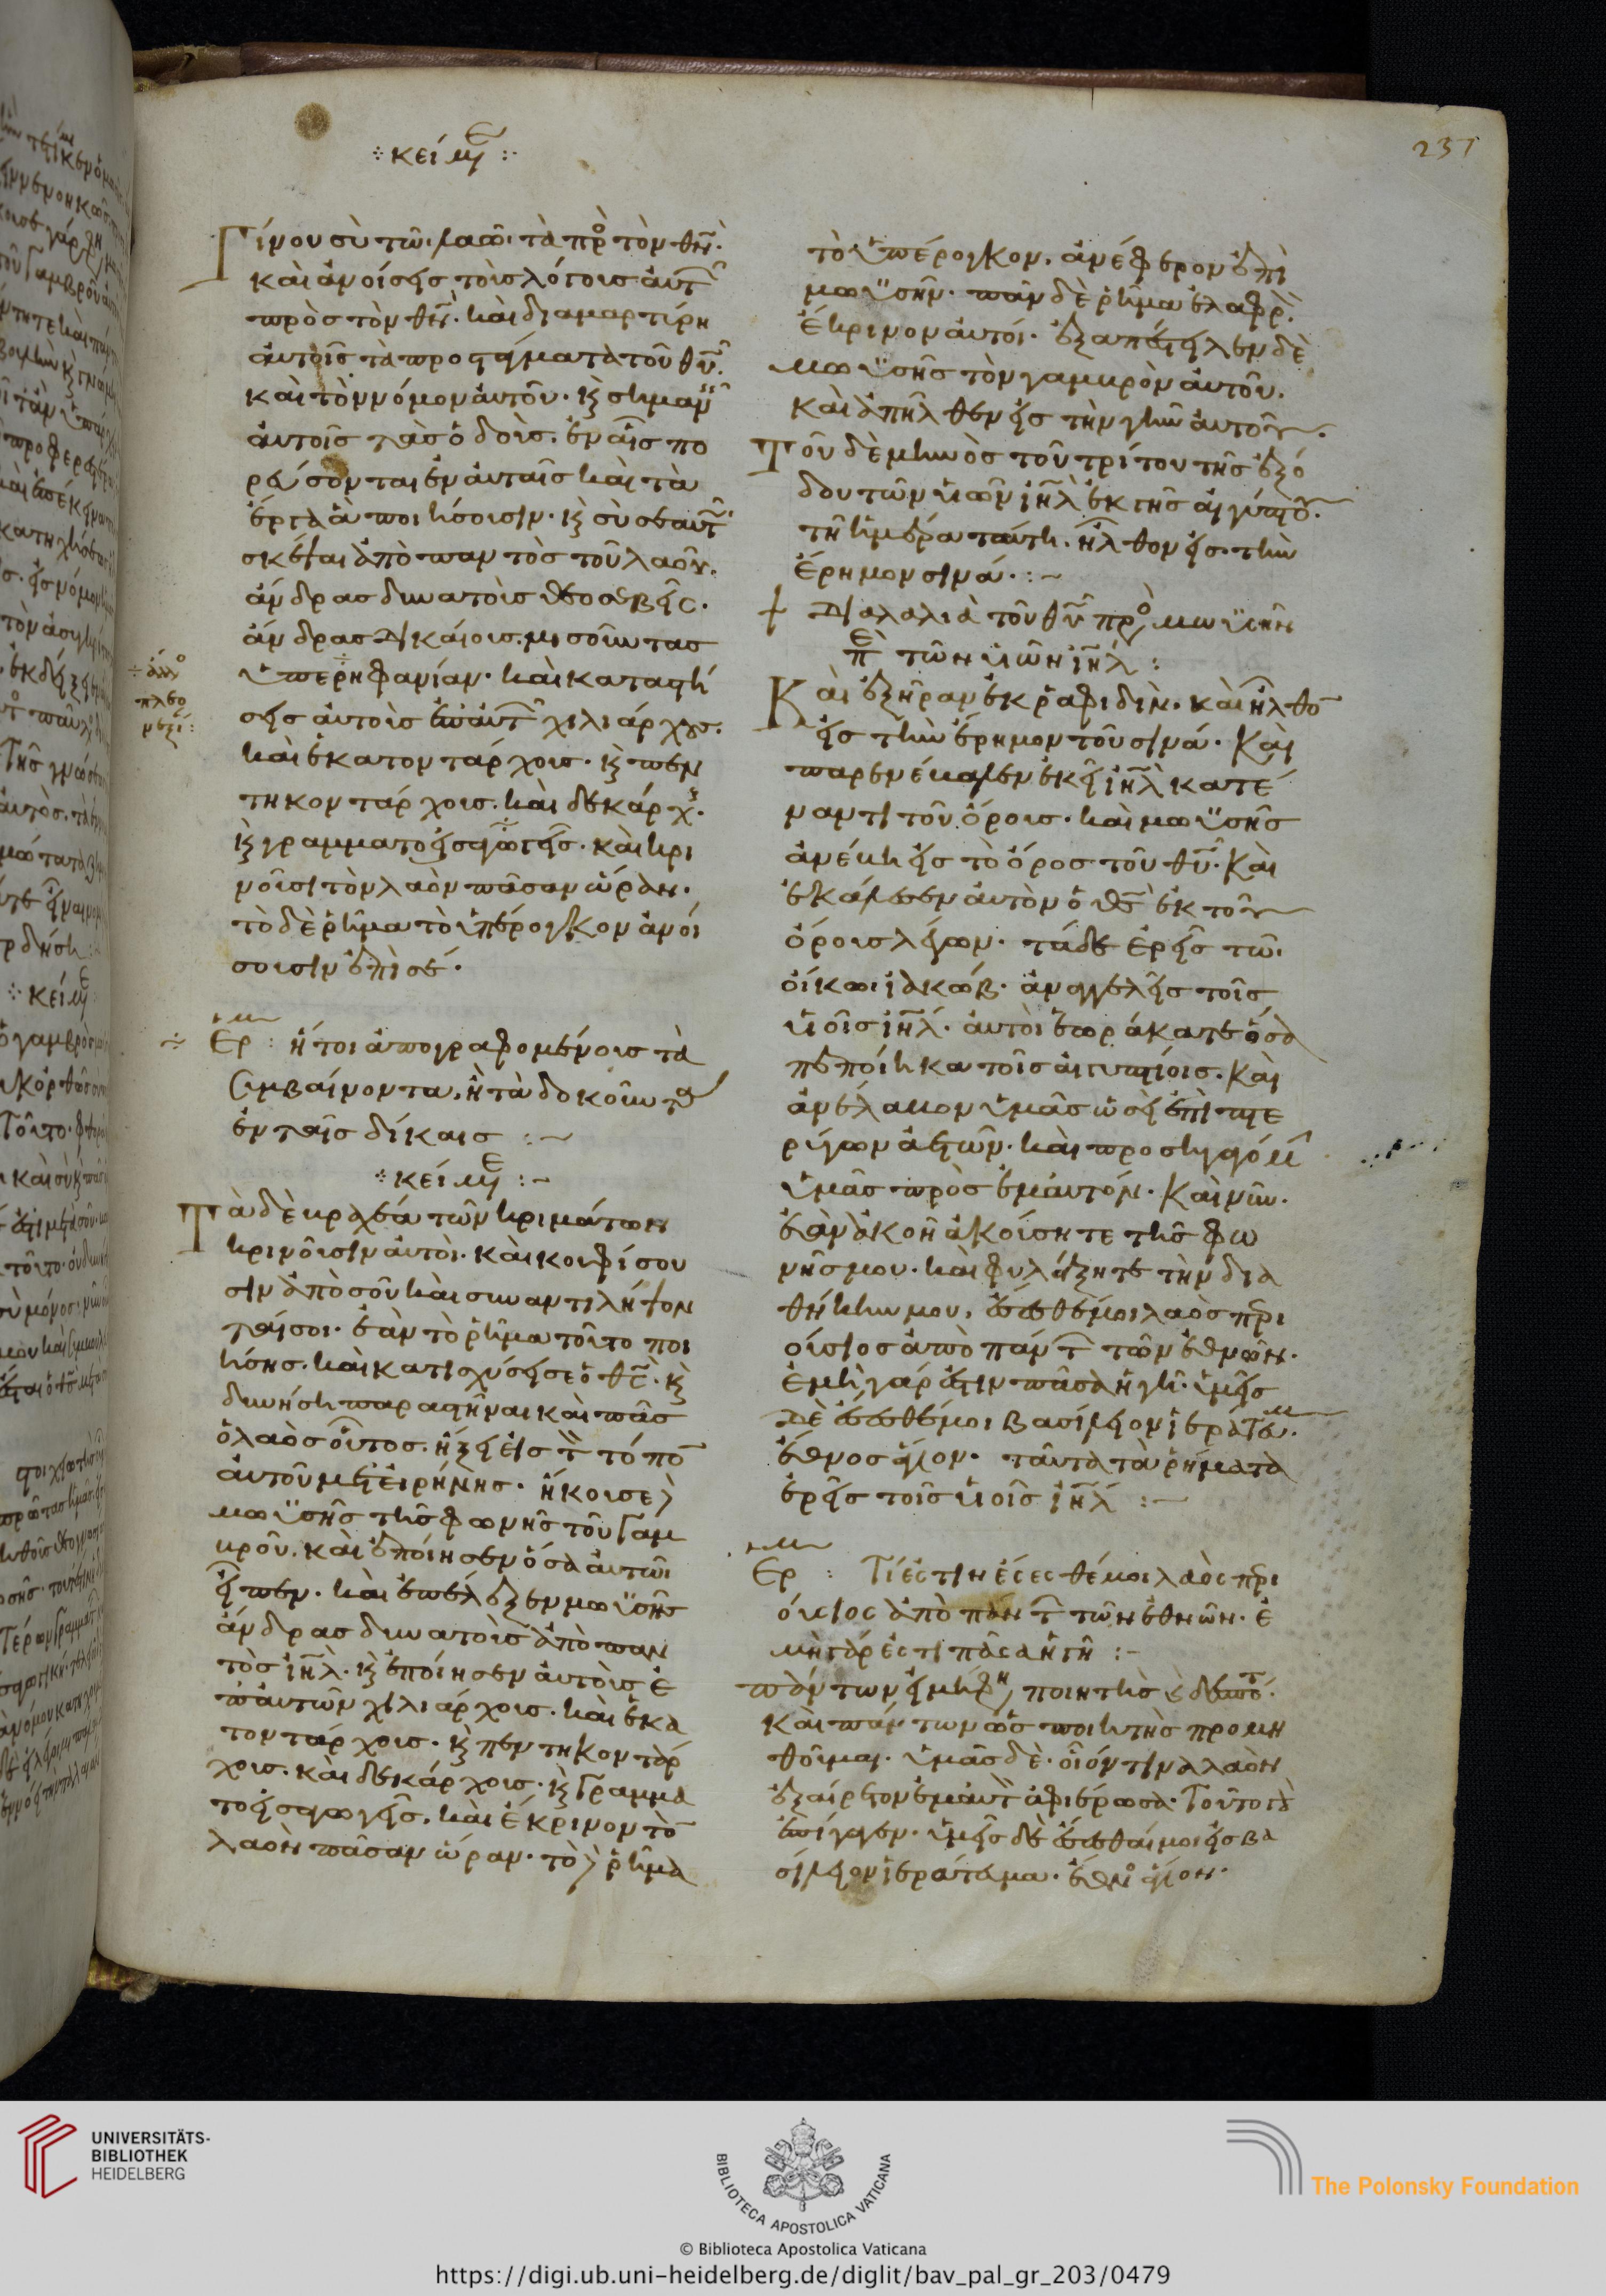 231
κείμ
Γίνου σὺ τῶ λαῶ τὰ πρ τὸν θν.
καὶ ἀνοίσεις τοὺς λόγους αὐτ
πρὸς τὸν θν. καὶ διαμαρτύρη
αὐτοῖς τὰ προστάγματα τοῦ θυ.
καὶ τὸν νόμον αὐτοῦ. κ σημαν
αὐτοῖς τὰς ὁδοὺς. ἐν αἷς πο
ρεύσονται ἐν αὐταῖς καὶ τὰ
ἔργα ἃ ποιήσουσιν. κ σὺ σεαυτ
σκέψαι ἀπὸ παντὸς τοῦ λαοῦ.
ἄνδρας δυνατοὺς θεοσεβεῖς.
ἄνδρας δικαίους. μισοῦντας
ὑπερηφανίαν. καὶ καταστή
σεις αὐτοὺς ἐπ αὐτ χιλιάρχους.
καὶ ἑκατοντάρχους. κ πεν
τηκοντάρχους. καὶ δεκάρχ.
κ γραμματοεισαγωγεῖς. καὶ κρι
νοῦσι τὸν λαὸν πᾶσαν ὥραν.
τὸ δὲ ῥῆμα τὸ ὑπέρογκον ἀνοί
σουσιν ἐπὶ σέ.
Ερ : ἤτοι ἀπογραφομένους τὰ
συμβαίνοντα, ἢ τὰ δοκοῦντα
ἐν ταῖς δίκαις :~
κείμ :~
Τὰ δὲ βραχέα τῶν κριμάτων
κρινοῦσιν αὐτοὶ. καὶ κουφίσου
σιν ἀπὸ σοῦ καὶ συναντιλήψον
ταί σοι. ἐὰν τὸ ῥῆμα τοῦτο ποι
ήσης. καὶ κατισχύσει σε ὁ θς. κ
δυνήση παραστῆναι καὶ πᾶς
ὁ λαὸς οὗτος. ἥξει εἰς τ τόπο
αὐτοῦ μετ εἰρήνης. ἤκουσε
μωϋσῆς τῆς φωνῆς τοῦ γαμ
βροῦ. καὶ ἐποίησεν ὅσα αὐτῶ
εἶπεν. καὶ ἐπέλεξεν μωϋσῆς
ἄνδρας δυνατοὺς ἀπὸ παν
τὸς ιηλ. κ ἐποίησεν αὐτοὺς ἐ
π αὐτῶν χιλιάρχους. καὶ ἑκα
τοντάρχους. κ πεντηκοντάρ
χους. καὶ δεκάρχους. κ γραμμα
τοεισαγωγεῖς. καὶ ἔκρινον τὸ
λαὸν πᾶσαν ὥραν. τὸ ῥῆμα
τὸ ὑπέρογκον. ἀνέφερον ἐπὶ
μωϋσῆν. πᾶν δὲ ῥῆμα ἐλαφρ.
ἔκρινον αὐτοί. ἐξαπέστειλεν δὲ
μωϋσῆς τὸν γαμβρὸν αὐτοῦ.
καὶ ἀπῆλθεν εἰς τὴν γῆν αὐτοῦ.
Τοῦ δὲ μηνὸς τοῦ τρίτου τῆς ἐξό
δου τῶν υἱῶν ιηλ ἐκ γῆς αἰγύπτου.
τῇ ἡμέρα ταύτη. ἦλθον εἰς τὴν
ἔρημον σινά. :~
Διαλαλιὰ τοῦ θυ πρ μωϋσῆν
π τῶν υἱῶν ιηλ :
Καὶ ἐξῆραν ἐκ ῥαφιδὶν. καὶ ἦλθο
εἰς τὴν ἔρημον τοῦ σινά. Καὶ
παρενέβαλεν ἐκεῖ ιηλ κατέ
ναντι τοῦ ὄρους. καὶ μωϋσῆς
ἀνέβη εἰς τὸ ὄρος τοῦ θυ. Καὶ
ἐκάλεσεν αὐτὸν ὁ θς ἐκ τοῦ
ὄρους λέγων. τάδε ἐρεῖς τῶ
οἴκω ιακώβ. ἀναγγελεῖς τοῖς
υἱοῖς ιηλ. αὐτοὶ ἑωράκατε ὅσα
πεποίηκα τοῖς αἰγυπτίοις. Καὶ
ἀνέλαβον ὑμᾶς ὡσεὶ ἐπὶ πτε
ρύγων ἀετῶν. καὶ προσηγαγόμ
ὑμᾶς πρὸς ἐμαυτόν. Καὶ νῦν.
ἐὰν ἀκοῆ ἀκούσητε τῆς φω
νῆς μου. καὶ φυλάξητε τὴν δια
θήκην μου, ἔσεσθέ μοι λαὸς περι
ούσιος ἀπὸ πάντ τῶν ἐθνῶν.
ἐμὴ γάρ ἐστιν πᾶσα ἡ γῆ. ὑμεῖς
δὲ ἔσεσθέ μοι βασίλειον ἱεράτευμ.
ἔθνος ἅγιον. ταῦτα τὰ ῥήματα
ἐρεῖς τοῖς υἱοῖς ιηλ :~
Ερ : Τί ἐστιν ἔσεσθέ μοι λαὸς περι
ούσιος ἀπὸ πάντ τῶν ἐθνῶν. ἐ
μὴ γάρ ἐστι πᾶσα ἡ γῆ :~
πάντων εἰμὶ ποιητὴς κ δεσπό.
καὶ πάντων ὡς ποιητὴς προμη
θοῦμαι. ὑμᾶς δὲ οἷόν τινα λαὸν
ἐξαίρετον ἐμαυτ ἀφιέρωσα. Τούτοις
ἐπήγαγεν. ὑμεῖς δὲ ἔσεσθαί μοι εἰς βα
σίλειον ἱεράτευμα. ἔθν ἅγιον.
UNIVERSITÄTS-
BIBLIOTHEK
HEIDELBERG
BIBLIOTECA APOSTOLICA VATICANA
The Polonsky Foundation
© Biblioteca Apostolica Vaticana
https://digi.ub.uni-heidelberg.de/diglit/bav_pal_gr_203/0479